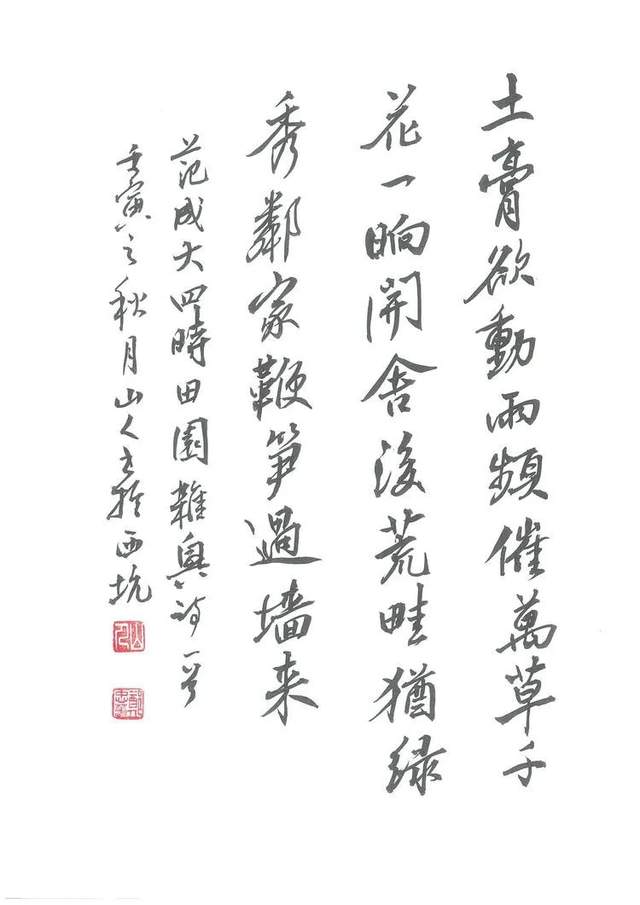 土膏欲動雨頻催萬草千
花一晌開舍後荒畦猶緑
秀鄰家鞭笋過墙来
范成大四時田園雜興詩一首
壬寅之秋月山人书於西坑